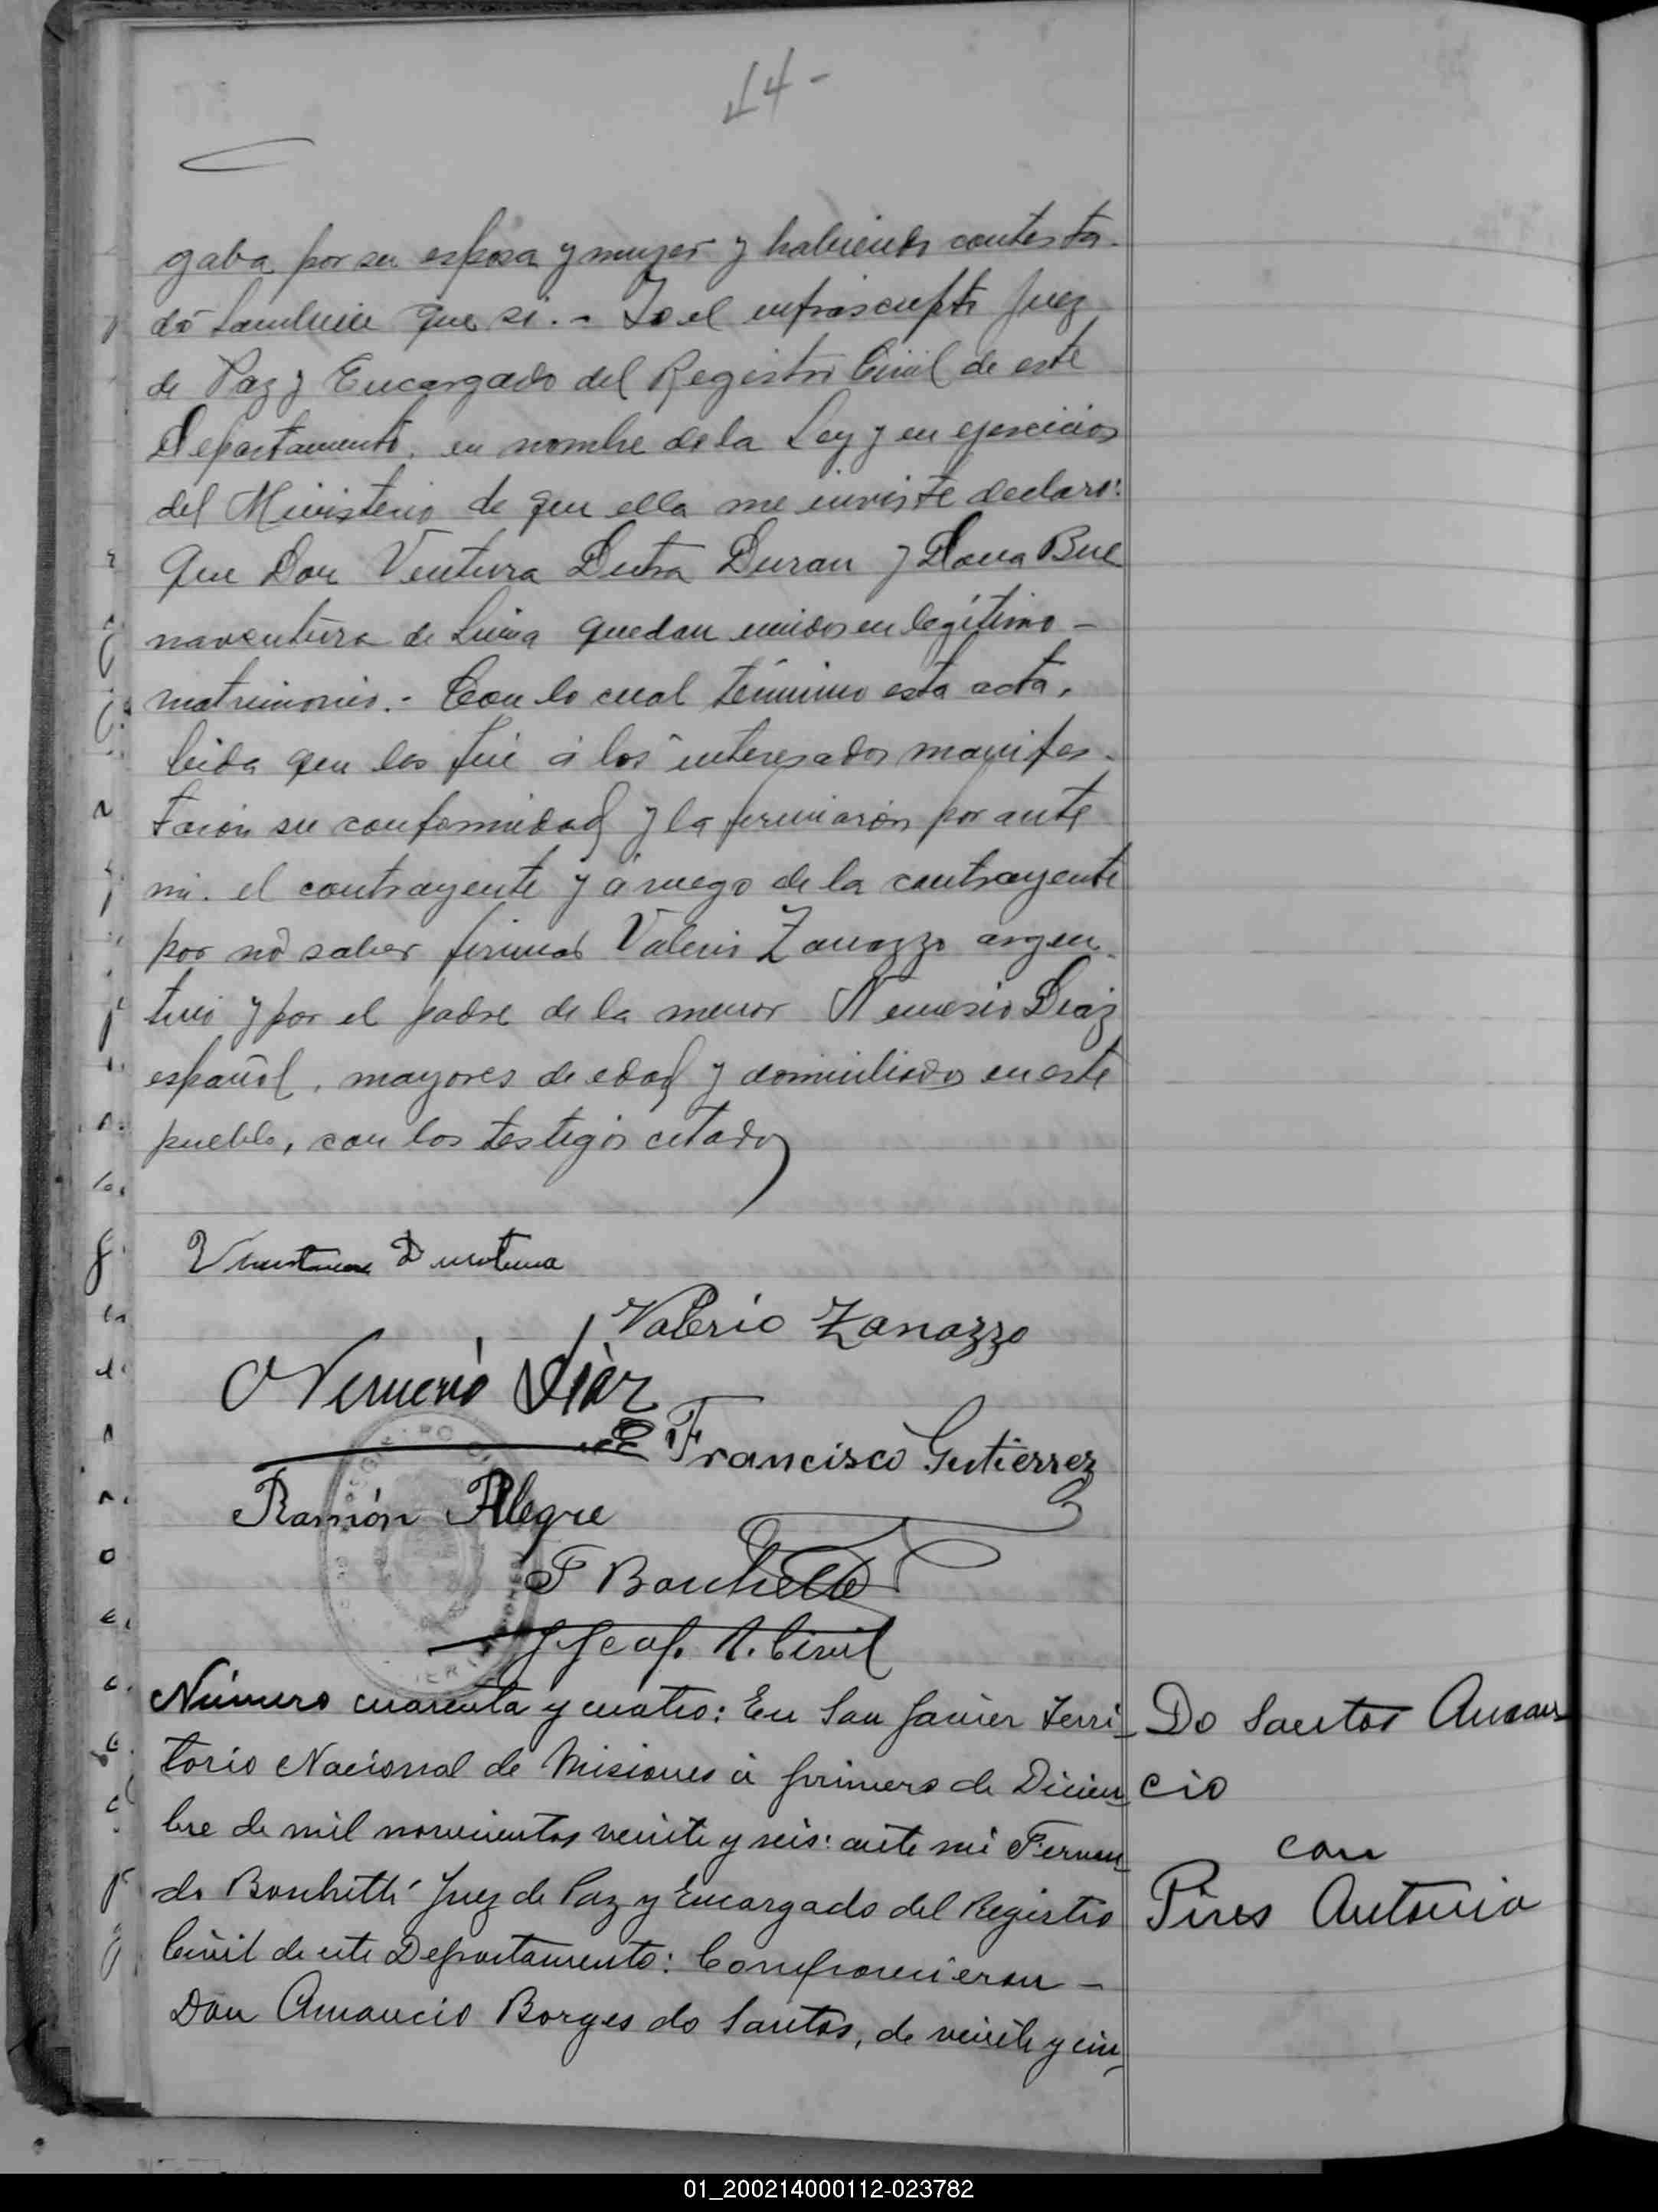 44-
gaba por su esposa y mujer y habiendo contesta-
do tambien que si.- Yo el infrascripto Juez
de Paz y Encargado del Registro Civil de este
Departamento, en nombre de la Ley y en ejercicios
del Ministerio de que ella me inviste declaro:
Que Don Ventura Dutra Duran y Doña Bue
naventura de Lima quedan unidos en legítimo -
matrimonio.- Con lo cual término esta acta,
leida que les fué á los interesados manifes-
taron su conformidad y la firmaron por ante
mi. el contrayente y á ruego de la contrayente
por nó saber firmar Valerio Zanazzo argen-
tino y por el padre de la menor Nemesio Diaz
español, mayores de edad y domiciliados en este
pueblo, con los testigos citados
Valerio Zanazzo
Nemesio Diaz
Francisco Gutierrez
Ramón Alegre
F Boschetti
R. Civil
Número cuarenta y cuatro: En San Javier Terri-
torio Nacional de Misiones á primero de Diciem-
bre de mil novecientos veinte y seis: ante mi Fernan-
do Boschetti Juez de Paz y Encargado del Registro
Civil de este Departamento: Comparecieron -
Don Amancio Borges do Santos, de veinte y cin-
Do Santos Aman
cio
con
Pires Antonia
01_200214000112-023782